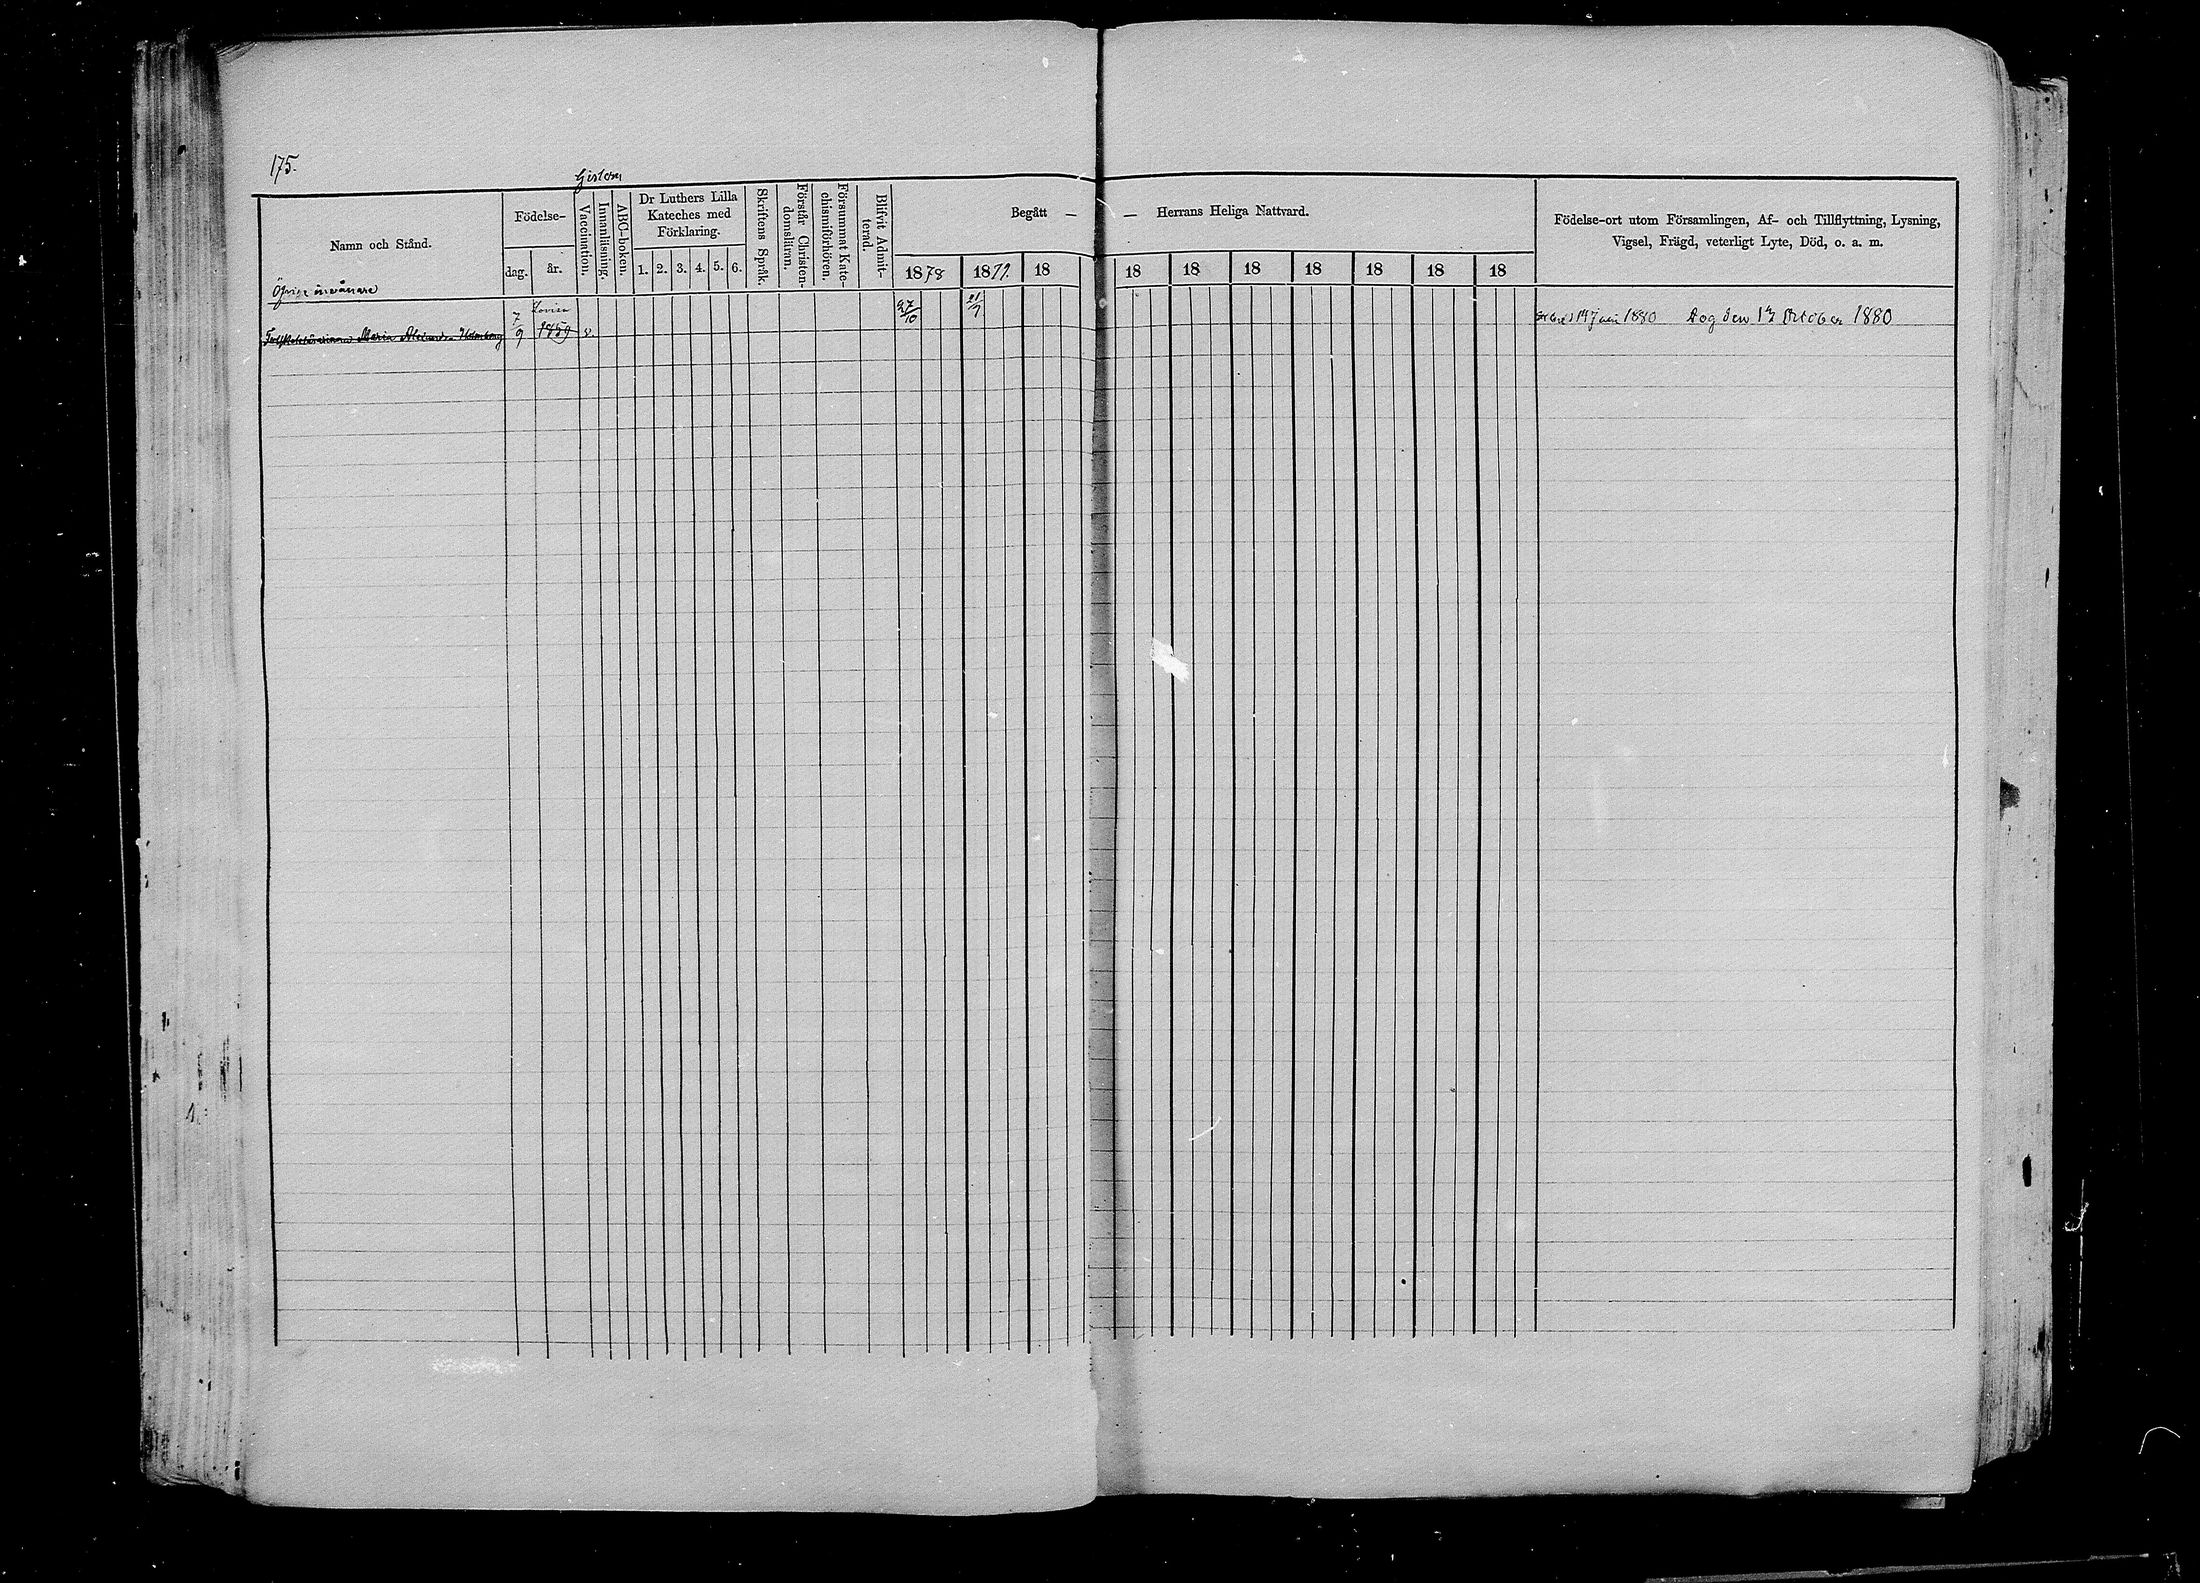 175.
Gislom
Namn och Stånd.
Födelse-
dag.
år.
Vaccination.
Innanläsning.
ABC-boken.
Dr Luthers Lilla
Kateches med
Förklaring.
1. 2. 3. 4. 5. 6.
Skriftens Språk.
Förstår Christen-
domsläran.
Försummat Kate-
chismiförhören.
Blifvit Admit-
terad.
Begått — — Herrans Heliga Nattvard.
1878 1879. 18 18 18 18 18 18 18 18
Födelse-ort utom Församlingen, Af- och Tillflyttning, Lysning,
Vigsel, Frägd, veterligt Lyte, Död, o. a. m.
Öfrige invånare
Lovisa
Folkskolelärarinna Maria Alexandra Holmberg 7/9 1859 v. 27/10
Juni 1880 Dog den 17 October 1880